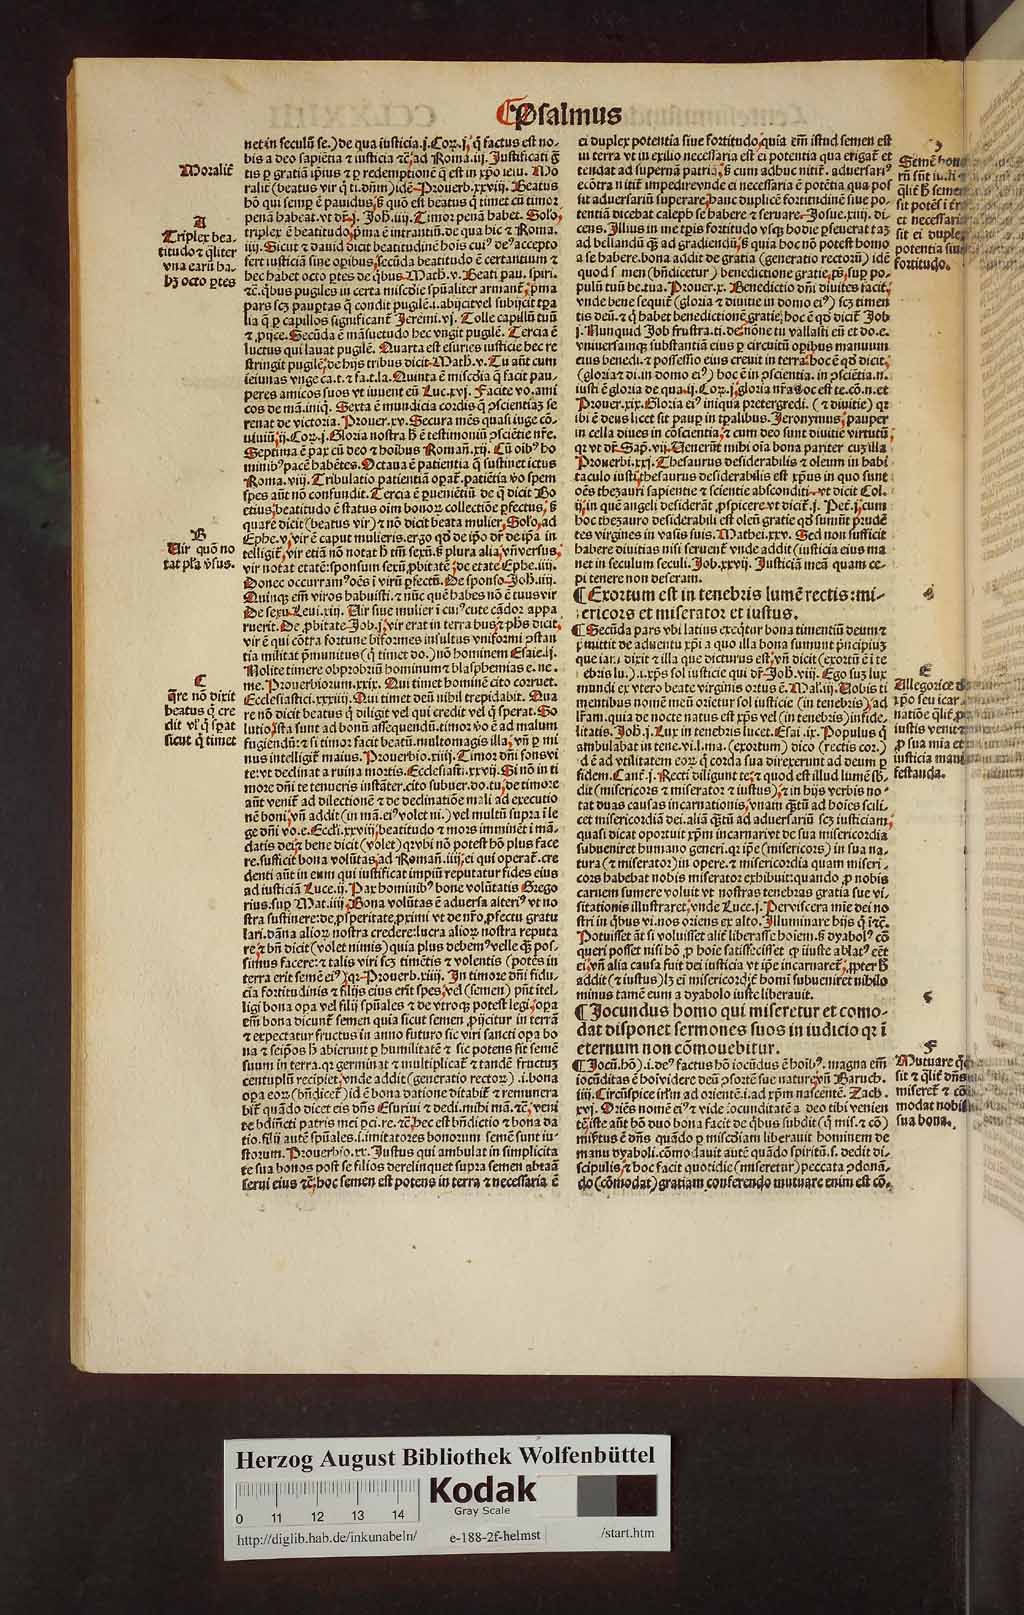 Psalmus
Moralit̃
A
Triplex bea-
titudo ⁊ q̃liter
vna earũ ha-
bꝫ octo ꝑtes
B
Uir quõ no
tat pl̃a v̓sus.
C
q̃re nõ dixit
beatus q̃ cre
dit vl̓ q̃ sꝑat
sicut q̃ timet
net in seculũ se.) de qua iusticia.j. Coꝝ.j. q̃ factus est no-
bis a deo sapiẽtia ⁊ iusticia ⁊c̃, ad Roma.iij. Justificati g̃
tis ꝑ gratiã ip̃ius ⁊ ꝑ redemptionẽ q̃ est in xp̃o iesu. Mo
ralit̃ (beatus vir q̃ ti.dñm) idẽ Prouerb.xxviij. Beatus
hõ qui semꝑ ẽ pauidus, s̃ quõ est beatus q̃ timet cũ timor
penã habeat. vt dr̃.j. Joh̃.iiij. Timor penã habet. Solo,
triplex ẽ beatitudo, p̃ma ẽ intrantiũ. de qua hic ⁊ Roma.
iiij. Sicut ⁊ dauid dicit beatitudinẽ hois cui⁹ de⁹ accepto
fert iusticiã sine oꝑibus, secũda beatitudo ẽ certantium ⁊
hec habet octo ꝑtes de q̃bus Math̃.v. Beati pau. spiri.
⁊c̃. q̃bus pugiles in certa misc̃die sp̃naliter armant̃, p̃ma
pars scꝫ pauꝑtas q̃ condit pugilẽ.i.abijcit vel subijcit tꝑa
lia q̃ ꝑ capillos significant̃ Jeremi.vj. Tolle capillũ tuũ
⁊ ꝓijce. Secũda ẽ mãsuetudo hec vngit pugilẽ. Tercia ẽ
luctus qui lauat pugilẽ. Quarta est esuries iusticie hec re
stringit pugilẽ, de hijs tribus dicit Math̃.v. Tu aũt cum
ieiunas vnge ca.t. ⁊ fa.t.la. Quinta ẽ misc̃dia q̃ facit pau-
peres amicos suos vt iuuent eũ Luc.xvj. Facite vo.ami
cos de mã.iniq̃. Sexta ẽ mundicia cordis q̃ ꝯscientiaꝫ se
renat de victoria. Prouer.xv. Secura mẽs quasi iuge cõ-
uiuiũ, ij. Coꝝ.j. Gloria nostra h̃ ẽ testimoniũ ꝯsciẽtie nr̃e.
Septima ẽ pax cũ deo ⁊ hoibus Romañ.xij. Cũ oib⁹ ho
minib⁹ pacẽ habẽtes. Octaua ẽ patientia q̃ sustinet ictus
Roma.viij. Tribulatio patientiã oꝑat̃. patiẽtia v̓o spem
spes aũt nõ confundit. Tercia ẽ ꝑueniẽtiũ de q̃ dicit Bo
etius, beatitudo ẽ status oim bonoꝝ collectiõe ꝑfectus, s̃
quare dicit (beatus vir) ⁊ nõ dicit beata mulier, Solo, ad
Ephe.v. vir ẽ caput mulieris. ergo qđ de ip̃o dr̃ de ip̃a in
telligit̃, vir etiã nõ notat h̃ tm̃ sexũ, s̃ plura alia, vñ versus,
vir notat etatẽ: sponsum sexũ, ꝓbitatẽ, de etate Ephe.iiij.
Donec occurram⁹ oẽs ĩ virũ ꝑfectũ. De sponso Joh̃.iiij.
Quinqꝫ em̃ viros habuisti. ⁊ nũc quẽ habes nõ ẽ tuus vir
De sexu Leui.xiij. Uir siue mulier ĩ cui⁹ cute cãdor appa
ruerit. De ꝓbitate Job.j. vir erat in terra hus, ⁊ ph̃s dicit,
vir ẽ qui cõtra fortune biformes insultus vniformi ꝯstan
tia militat p̃munitus (q̃ timet do.) nõ hominem Esaie.lj.
Nolite timere obprobriũ hominum ⁊ blasphemias e. ne.
me. Prouerbiorum.xxix. Qui timet hominẽ cito corruet.
Ecclesiastici.xxxiiij. Qui timet deũ nihil trepidabit. Qua
re nõ dicit beatus q̃ diligit vel qui credit vel q̃ sperat. So
lutio, ista sunt ad bonũ assequendũ. timor v̓o ẽ ad malum
fugiendũ: ⁊ si timor facit beatũ. multomagis illa, vñ ꝑ mi
nus intelligit̃ maius. Prouerbio.xiiij. Timor dñi fons vi
te: vt declinat a ruina mortis. Ecclesiasti.xxvij. Si nõ in ti
more dñi te tenueris instãter, cito subuer.do.tu, de timore
aũt venit̃ ad dilectionẽ ⁊ de declinatiõe mali ad executio
nẽ boni, vñ addit (in mã.ei⁹ volet ni.) vel multũ supra ĩ le
ge dñi vo.e. Eccl̃i.xxviij, beatitudo ⁊ mors imminẽt ĩ mã-
datis dei, ⁊ bene dicit (volet) qꝛ vbi nõ potest hõ plus face
re. sufficit bona volũtas, ad Romañ.iiij, ei qui operat̃. cre
denti aũt in eum qui iustificat impiũ reputatur fides eius
ad iusticiã Luce.ij. Pax hominib⁹ bone volũtatis Grego
rius. suꝑ Mat.iiij, Bona volũtas ẽ aduersa alteri⁹ vt no
stra sustinere: de ꝓsperitate ꝓximi vt de nr̃o, ꝓfectu gratu
lari. dãna alioꝝ nostra credere: lucra alioꝝ nostra reputa
re, ⁊ bñ dicit (volet nimis) quia plus debem⁹ velle q̃ꝫ pos-
simus facere: ⁊ talis viri scꝫ timẽtis ⁊ volentis (potẽs in
terra erit semẽ ei⁹) qꝛ Prouerb.xiiij. In timore dñi fidu-
cia fortitudinis ⁊ filijs eius erit spes, vel (semen) pñt itel-
ligi bona oꝑa vel filij sp̃nales ⁊ de vtroqꝫ potest legi, oꝑa
em̃ bona dicunt̃ semen quia sicut semen ꝓijcitur in terrã
⁊ expectatur fructus in anno futuro sic viri sancti oꝑa bo
na ⁊ seip̃os h̃ abierunt ꝑ humilitatẽ ⁊ sic potens fit semẽ
suum in terra. qꝛ germinat ⁊ multiplicat̃ ⁊ tandẽ fructuꝫ
centuplũ recipiet, vnde addit (generatio rectoꝝ) .i.bona
opa eoꝝ (bñdicet̃) id ẽ bona datione ditabit̃ ⁊ remunera
bit̃ quãdo dicet eis dñs Esuriui ⁊ dedi.mihi mã.⁊c̃, veni
te bñdicti patris mei ꝑci.re.⁊c̃, hec est bñdictio ⁊ bona da
tio. filij autẽ sp̃nales.i.imitatores bonorum semẽ sunt iu-
storum. Prouerbio.xx. Justus qui ambulat in simplicita
te sua bonos post se filios derelinquet supra semen abraã
serui eius ⁊c̃, hoc semen est potens in terra ⁊ necessaria ẽ
ei duplex potentia siue fortitudo, quia em̃ istud semen est
in terra vt in exilio necessaria est ei potentia qua erigat̃ et
tendat ad supernã patriã, s̃ cum adhuc nitit̃. aduersari⁹
ecõtra nitit̃ impedire vnde ei necessaria ẽ potẽtia qua pos
sit aduersariũ superare, hanc duplicẽ fortitudinẽ siue po-
tentiã dicebat caleph se habere ⁊ seruare. Josue.xiiij. di-
cens. Illius in me tꝑis fortitudo vsqꝫ hodie ꝑseuerat taꝫ
ad bellandũ q̃ꝫ ad gradiendũ, s̃ quia hoc nõ potest homo
a se habere. bona addit de gratia (generatio rectorũ) idẽ
quod s men (bñdicetur) benedictione gratie, ps̃, suꝑ po-
pulũ tuũ be.tua. Prouer.x. Benedictio dñi diuites facit,
vnde bene sequit̃ (gloria ⁊ diuitie in domo ei⁹) scꝫ timen
tis deũ. ⁊ q̃ habet benedictionẽ gratie, hoc ẽ qđ dicit̃ Job
j. Nunquid Job frustra.ti.de, nõne tu vallasti eũ et do.e.
vniuersamqꝫ substantiã eius ꝑ circuitũ opibus manuum
eius benedi. ⁊ possessio eius creuit in terra, hoc ẽ qđ dicit,
(gloria ⁊ di.in domo ei⁹) hoc ẽ in ꝯscientia. in ꝯsciẽtia.n.
iusti ẽ gloria de qua.ij. Coꝝ.j. gloria nr̃a hoc est te.cõ.n.et
Prouer.xix. Gloria ei⁹ iniqua pretergredi. (⁊ diuitie) qꝛ
ibi ẽ deus licet sit pauꝑ in tꝑalibus. Jeronymus, pauper
in cella diues in cõscientia, ⁊ cum deo sunt diuitie virtutũ,
qꝛ vt dr̃. Sap̃.vij. Uenerũt mihi oĩa bona pariter cuꝫ illa
Prouerbi.xxj. Thesaurus desiderabilis ⁊ oleum in habi
taculo iusti, thesaurus desiderabilis est xp̃us in quo sunt
oẽs thezauri sapientie ⁊ scientie absconditi vt dicit Col.
ij, in quẽ angeli desiderãt ꝓspicere vt dicit̃.j. Pet̃.j, cum
hoc thezauro desiderabili est oleũ gratie qđ sumũt prudẽ
tes virgines in vasis suis. Mathei.xxv. Sed non sufficit
habere diuitias nisi seruent̃ vnde addit (iusticia eius ma
net in seculum seculi. Job.xxvij. Iusticiã meã quam ce-
pi tenere non deseram.
¶ Exortum est in tenebris lumẽ rectis: mi-
sericors et miserator et iustus.
¶ Secũda pars vbi latius exeq̃tur bona timentiũ deum ⁊
ꝓmittit de aduentu xp̃i a quo illa bona sumunt p̃ncipiuꝫ
que iaꝫ dixit ⁊ illa que dicturus est, vñ dicit (exortũ ẽ ĩ te
ebris lu.).i.xp̃s sol iusticie qui dr̃ Joh̃.viij. Ego suꝫ lux
mundi ex vtero beate virginis ortus ẽ. Mal.iiij. Uobis ti
mentibus nomẽ meũ orietur sol iusticie (in tenebris), ad
lr̃am. quia de nocte natus est xp̃s vel (in tenebris) infide-
litatis. Joh̃.j. Lux in tenebris lucet. Esai.ix. Populus q̃
ambulabat in tene.vi.l.ma. (exortum) dico (rectis cor.)
.i. ẽ ad vtilitatem eoꝝ q̃ corda sua direxerunt ad deum ꝑ
fidem. Cant̃.j. Recti diligunt te, ⁊ quod est illud lumẽ sb̃-
dit (misericors ⁊ miserator ⁊ iustus), ⁊ in hijs verbis no-
tat duas causas incarnationis, vnam q̃ꝫtũ ad hoies scili-
cet misericordiã dei. aliã q̃ꝫtũ ad aduersariũ scꝫ iusticiam,
quasi dicat oportuit xp̃m incarnari vt de sua misericordia
subueniret humano generi. qꝛ ip̃e (misericors) in sua na-
tura (⁊ miserator) in opere. ⁊ misericordia quam miseri-
cors habebat nobis miserator exhibuit: quando ꝓ nobis
carnem sumere voluit vt nostras tenebras gratia sue vi-
sitationis illustraret, vnde Luce.j. Per viscera mie dei no
stri in q̃bus vi.nos oriens ex alto. Illuminare hijs q̃ ĩ ⁊c̃.
Potuisset at̃ si voluisset aliẽ liberasse hoiem. s̃ dyabol⁹ cõ
queri posset nisi hõ ꝓ hoie satisfecisset ꝙ iniuste ablat⁹ eẽt
ei, vñ alia causa fuit dei iusticia vt ip̃e incarnaret̃, ꝓpter h̃
addit (⁊ iustus) lꝫ ei misericordit̃ homĩ subueniret nihilo
minus tamẽ eum a dyabolo iuste liberauit.
¶ Jocundus homo qui miseretur et como-
dat disponet sermones suos in iudicio qꝛ ĩ
eternum non cõmouebitur.
¶ Jocũ.hõ).i.de⁹ factus hõ iocũdus ẽ hoib⁹. magna em̃
iocũditas ẽ hoi videre deũ ꝯsortẽ sue nature, vñ Baruch.
iiij. Circũspice irl̃m ad orientẽ.i.ad xp̃m nascentẽ. Zach.
xvj. Oriẽs nomẽ ei⁹ ⁊ vide iocunditatẽ a deo tibi venien
tẽ, iste aũt hõ duo bona facit de q̃bus subdit (q̃ mis.⁊ cõ)
miẽtus ẽ dñs quãdo ꝑ misc̃diam liberauit hominem de
manu dyaboli. cõmodauit autẽ quãdo spiritũ.s. dedit di-
scipulis, ⁊ hoc facit quotidie (miseretur) peccata ꝯdonã-
do (cõmodat) gratiam conferendo mutuare enim est cõ-
Semẽ hono
q̃lit̃ h̃ semen
et necessaria
sit ei duplex
potentia siue
fortitudo.
E
Allegorice
xp̃o seu icar
natiõe q̃lit̃
iustis venit
ꝓ sua mia et
iusticia mani
festanda.
F
Mutuare q̃d
sit ⁊ q̃lit̃ dñs
miseret̃ ⁊ cõ
modat nobis
sua bona.
Herzog August Bibliothek Wolfenbüttel
0 11 12 13 14
Kodak
Gray Scale
http://diglib.hab.de/inkunabeln/ e-188-2f-helmst /start.htm